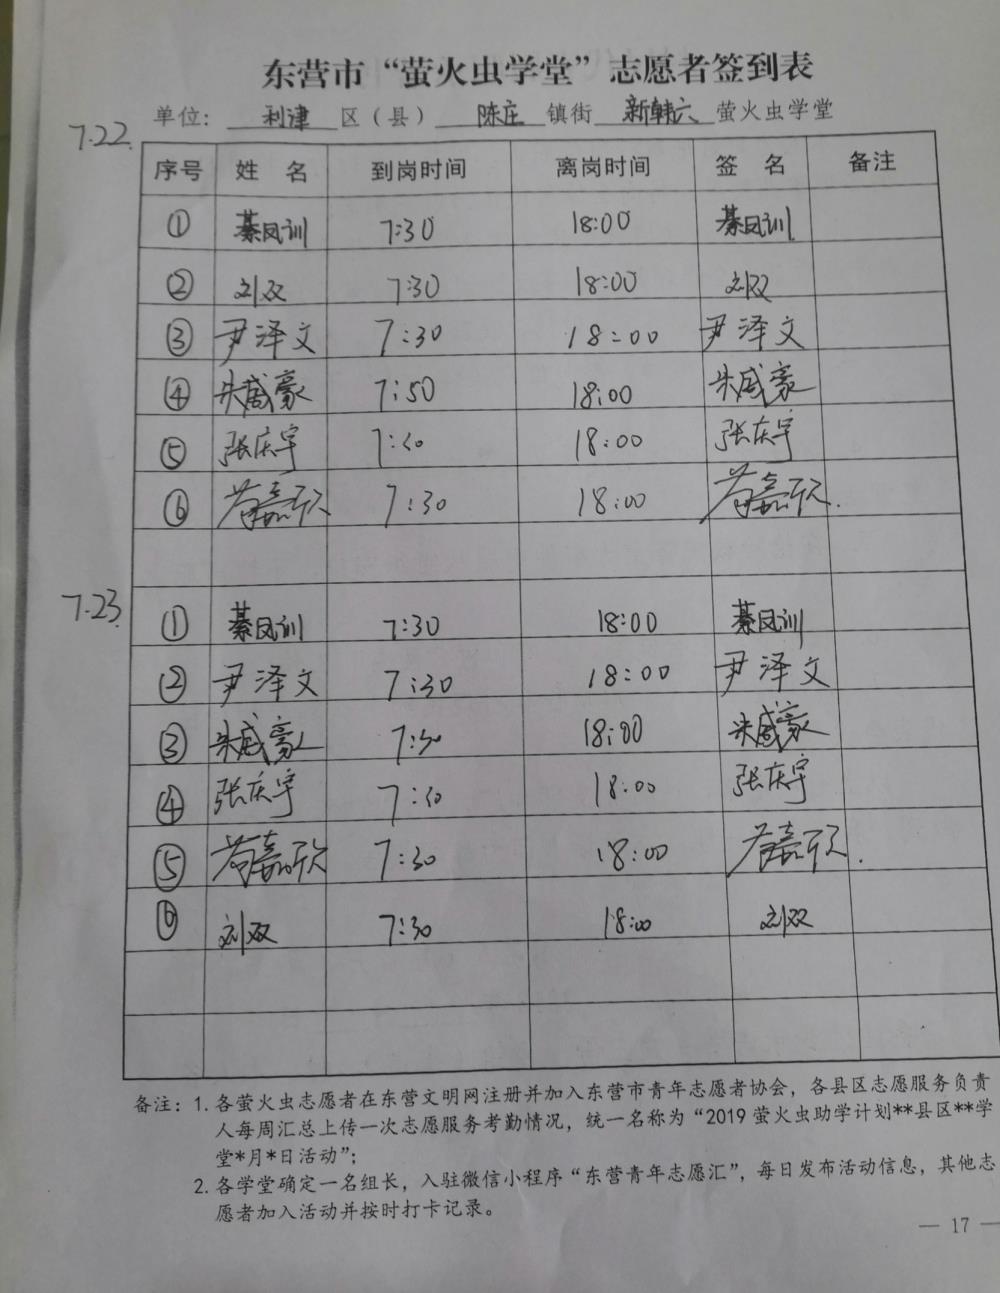 东营市“萤火虫学堂”志愿者签到表
单位： 利津 区（县） 陈庄 镇街 新韩六 萤火虫学堂
7.22.
序号 姓 名 到岗时间 离岗时间 签 名 备注
① 綦凤训 7:30 18:00 綦凤训
② 刘双 7:30 18:00 刘双
③ 尹泽文 7:30 18:00 尹泽文
④ 朱盛豪 7:50 18:00 朱盛豪
⑤ 张庆宇 18:00 张庆宇
⑥ 嘉欣 7:30 18:00 嘉欣
7.23.
① 綦凤训 7:30 18:00 綦凤训
② 尹泽文 7:30 18:00 尹泽文
③ 朱盛豪 7:30 18:00 朱盛豪
④ 张庆宇 7:30 18:00 张庆宇
⑤ 嘉欣 7:30 18:00 嘉欣
⑥ 刘双 7:30 18:00 刘双
备注：1. 各萤火虫志愿者在东营文明网注册并加入东营市青年志愿者协会，各县区志愿服务负责
人每周汇总上传一次志愿服务考勤情况，统一名称为“2019 萤火虫助学计划**县区**学
堂*月*日活动”；
2. 各学堂确定一名组长，入驻微信小程序“东营青年志愿汇”，每日发布活动信息，其他志
愿者加入活动并按时打卡记录。
— 17 —